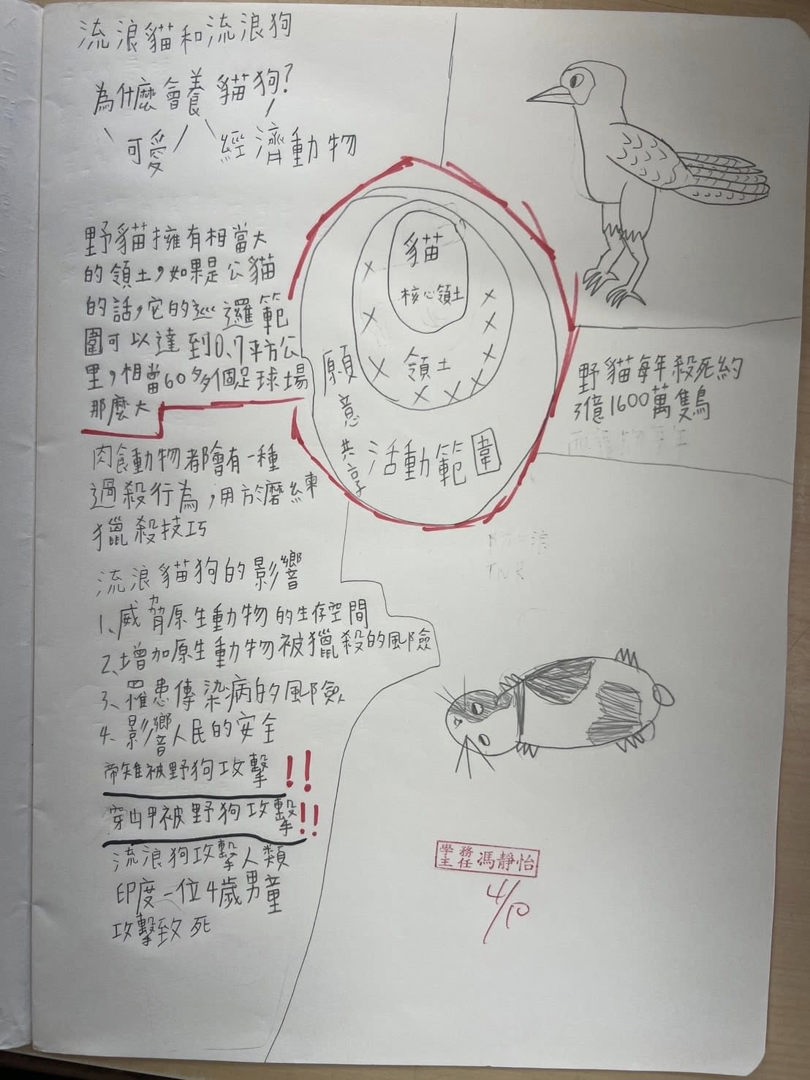 流浪貓和流浪狗
為什麼會養貓狗?
可愛 經濟動物
野貓擁有相當大
的領土,如果是公貓
的話,它的巡邏範
圍可以達到0.7平方公
里,相當60多個足球場
那麼大
貓
核心領土
領土
願意共享
活動範圍
野貓每年殺死約
3億1600萬隻鳥
肉食動物都會有一種
過殺行為,用於磨練
獵殺技巧
流浪貓狗的影響
1、威脅原生動物的生存空間
2、增加原生動物被獵殺的風險
3、罹患傳染病的風險
4、影響人民的安全
帝雉被野狗攻擊!!
穿山甲被野狗攻擊!!
流浪狗攻擊人類
印度一位4歲男童
攻擊致死
學務主任 馮靜怡
4/10